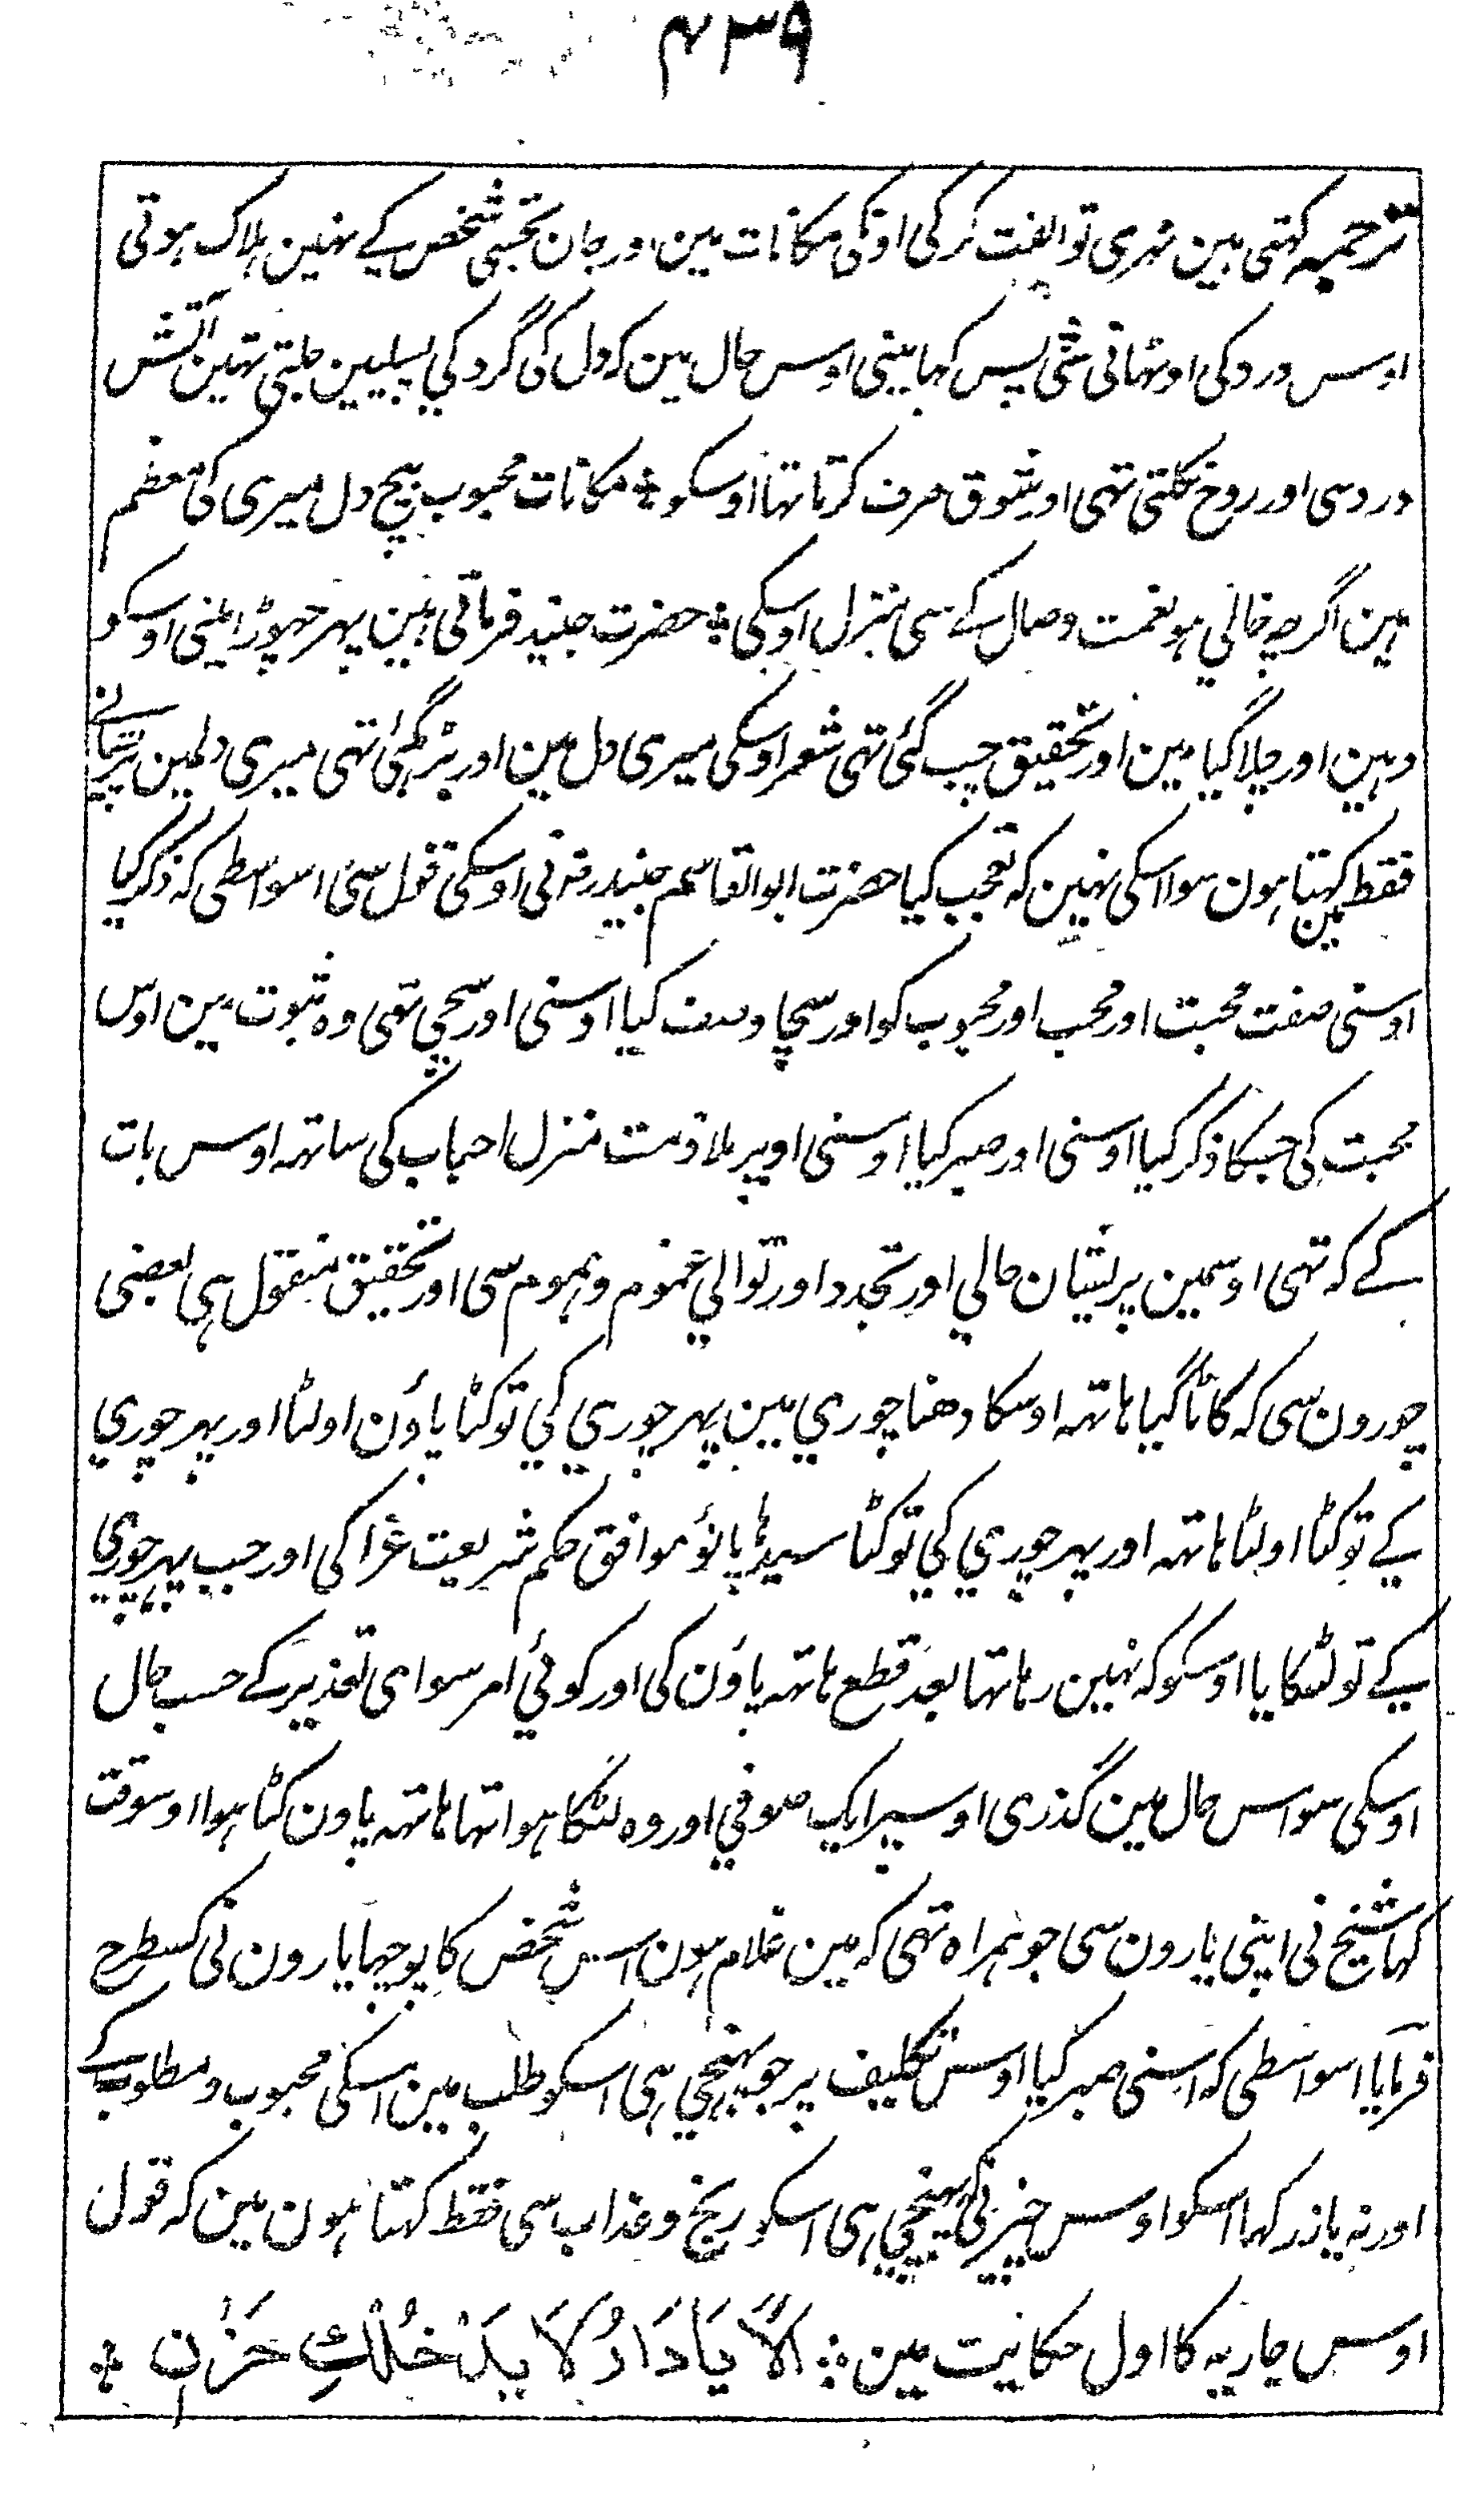 ۴۳۹
ترجمہ کہتی ہین ٹہری تو الفت کرکی اونکی مکانات مین اور جان تجہسی شخص کے نہین ہلاک ہوتی
اوس درد کی اوٹہانی سی پس کہا مینی اوس حال مین کہ دل کی گرد کي پسلیین جلتی تہین آتش
درد سی اور روح نکلتی تہی اور شوق صرف کرتا تہا اوسکو ؞ مکانات محبوب بیچ دل میری کی معظم
ہین اگرچہ خالي ہو نعمت وصال کے سی منزل اوسکی ؞ حضرت جنید فرماتی ہین پہر چہوڑا مینی اوسکو
وہین اور چلا گیا مین اور تحقیق چب گئی تہی شعر اوسکی میری دل مین اور بڑہ گئی تہی میری دلمین پریشانے
فقط کہتا ہون مین سوا اسکی نہین کہ تعجب کیا حضرت ابو القاسم جنید رضہ نی اوسکی قول سی اسواسطی کہ ذکر کیا
اوسنی صفت محبت اور محب اور محبوب کو اور سچا وصف کیا اوسنی اور سچی تہی وہ ثبوت مین اوس
محبت کی جسکا ذکر کیا اوسنی اور صبر کیا اوسنی اوپر ملازمت منزل احباب کی ساتہہ اوس بات
کے کہ تہی اوسمین پریشان حالي اور تجدد اور توالي غموم وہموم سی اور تحقیق منقول ہی بعضی
چورون سی کہ کاٹا گیا ہاتہہ اوسکا دہنا چوري مین پہر چوري کي تو کٹا پاؤن اولٹا اور پہر چوري
کے تو کٹا اولٹا ہاتہہ اور پہر چوري کي تو کٹا سیدہا پانؤ موافق حکم شریعت غرا کی اور جب پہر چوري
کے تو لٹکایا اوسکو کہ نہین رہا تہا بعد قطع ہاتہہ پاؤن کی اور کوئي امر سوای تعذیر کے حسب حال
اوسکی سو اس حال مین گذری اوسپر ایک صوفي اور وہ لٹکا ہوا تہا ہاتہہ پاون کٹا ہوا اوسوقت
کہا شیخ نی اپنی یارون سی جو ہمراہ تہی کہ مین غلام ہون اس شخص کا پوچہا یارون نی کسطرح
فرمایا اسواسطی کہ اسنی صبر کیا اوس تکلیف پر جو پہنچی ہی اسکو طلب مین اسکی محبوب ومطلوب کے
اور نہ باز رکہا اسکو اوس چیز نی کہ پہنچي ہی اسکو رنج وعذاب سی فقط کہتا ہون مین کہ قول
اوس جاریہ کا اول حکایت مین ؞ اَلَا يَا دَارُ لَا يَدْخُلْكِ حَزَنٌ ؞